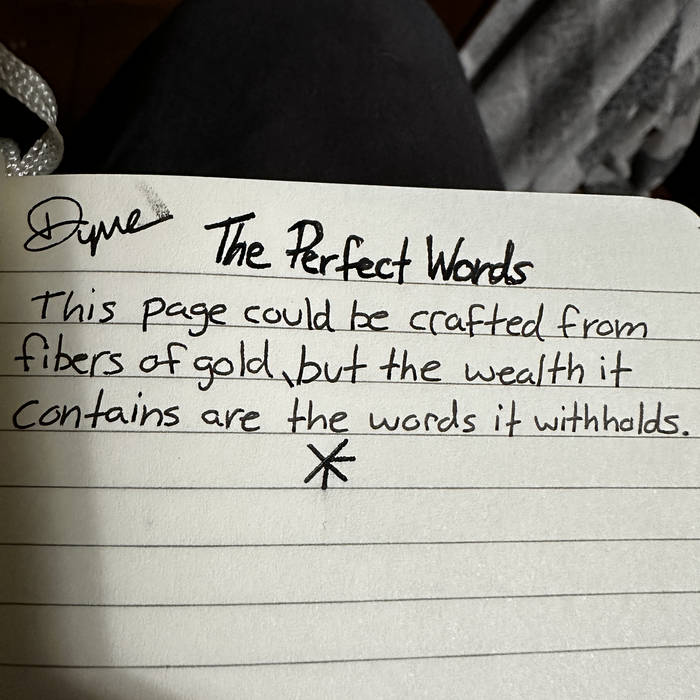 Dyme The Perfect Words
This page could be crafted from
fibers of gold, but the wealth it
contains are the words it withholds.
*